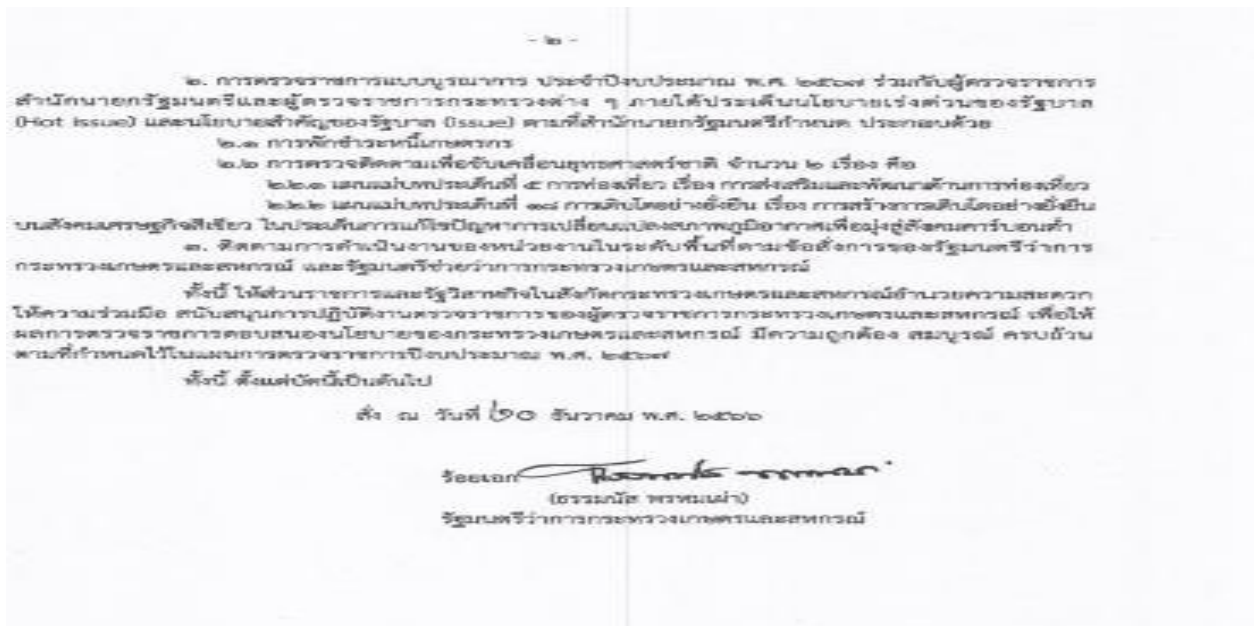 - ๒ -
๒. การตรวจราชการแบบบูรณาการ ประจำปีงบประมาณ พ.ศ. ๒๕๖๗ ร่วมกับผู้ตรวจราชการ
สำนักนายกรัฐมนตรีและผู้ตรวจราชการกระทรวงต่าง ๆ ภายใต้ประเด็นนโยบายเร่งด่วนของรัฐบาล
(Hot Issue) และนโยบายสำคัญของรัฐบาล (Issue) ตามที่สำนักนายกรัฐมนตรีกำหนด ประกอบด้วย
๒.๑ การพักชำระหนี้เกษตรกร
๒.๒ การตรวจติดตามเพื่อขับเคลื่อนยุทธศาสตร์ชาติ จำนวน ๒ เรื่อง คือ
๒.๒.๑ แผนแม่บทประเด็นที่ ๕ การท่องเที่ยว เรื่อง การส่งเสริมและพัฒนาด้านการท่องเที่ยว
๒.๒.๒ แผนแม่บทประเด็นที่ ๑๘ การเติบโตอย่างยั่งยืน เรื่อง การสร้างการเติบโตอย่างยั่งยืน
บนสังคมเศรษฐกิจสีเขียว ในประเด็นการแก้ไขปัญหาการเปลี่ยนแปลงสภาพภูมิอากาศเพื่อมุ่งสู่สังคมคาร์บอนต่ำ
๓. ติดตามการดำเนินงานของหน่วยงานในระดับพื้นที่ตามข้อสั่งการของรัฐมนตรีว่าการ
กระทรวงเกษตรและสหกรณ์ และรัฐมนตรีช่วยว่าการกระทรวงเกษตรและสหกรณ์
ทั้งนี้ ให้ส่วนราชการและรัฐวิสาหกิจในสังกัดกระทรวงเกษตรและสหกรณ์อำนวยความสะดวก
ให้ความร่วมมือ สนับสนุนการปฏิบัติงานตรวจราชการของผู้ตรวจราชการกระทรวงเกษตรและสหกรณ์ เพื่อให้
ผลการตรวจราชการตอบสนองนโยบายของกระทรวงเกษตรและสหกรณ์ มีความถูกต้อง สมบูรณ์ ครบถ้วน
ตามที่กำหนดไว้ในแผนการตรวจราชการปีงบประมาณ พ.ศ. ๒๕๖๗
ทั้งนี้ ตั้งแต่บัดนี้เป็นต้นไป
สั่ง ณ วันที่ ๒๐ ธันวาคม พ.ศ. ๒๕๖๖
ร้อยเอก
(ธรรมนัส พรหมเผ่า)
รัฐมนตรีว่าการกระทรวงเกษตรและสหกรณ์